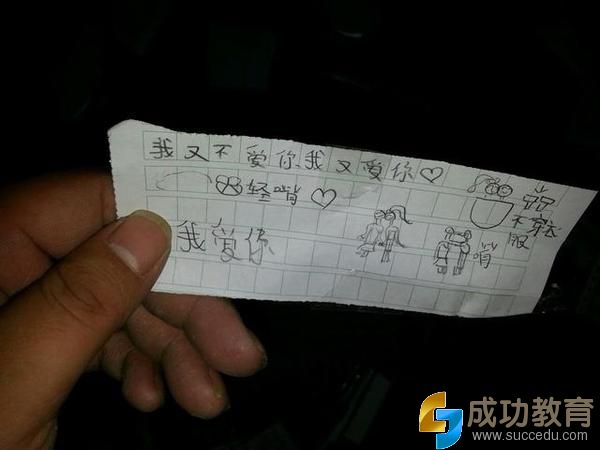 我又不爱你我又爱你♡
轻哨♡
不穿衣
服
我爱你
哨
成功教育
www.succedu.com